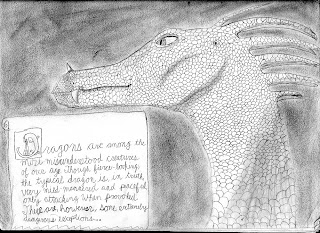 Dragons are among the
most misunderstood creatures
of our age. Though fierce-looking,
the typical dragon is, in truth,
very mild mannered and peaceful,
only attacking when provoked.
There are, however, some extremely
dangerous exceptions...